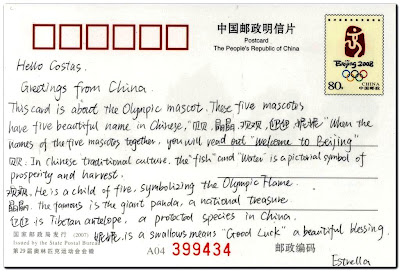 中国邮政明信片
Postcard
The People's Republic of China
Beijing 2008
80分
中国邮政
CHINA
Hello Costas.
Greetings from China.
This card is about the Olympic mascot. These five mascotes
have five beautiful name in Chinese, "贝贝, 晶晶, 欢欢, 迎迎, 妮妮" When the
names of the five mascotes together, you will read out "Welcome to Beijing"
贝贝. In Chinese traditional culture. the "fish" and "water" is a pictorial symbol of
prosperity and harvest.
欢欢. He is a child of five, symbolizing the Olympic Flame.
晶晶. the famous is the giant panda, a national treasure
迎迎 is Tibetan antelope, a protected species in China.
妮妮. is a swallows means "Good Luck" a beautiful blessing.
国家邮政局发行 (2007)
Issued by the State Postal Bureau
第29届奥林匹克运动会会徽
A04
399434
邮政编码
Estrella